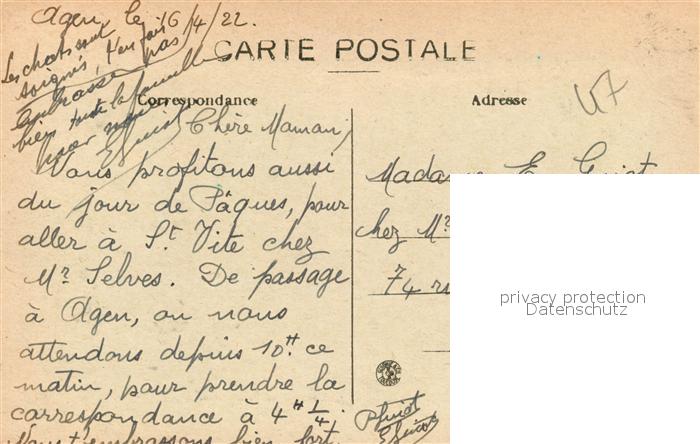 Agen, le 16/4/22.
Les chats sont
soignés, t'en fais pas
Embrasse
bien toute la famille
pour nous
EGuiot
CARTE POSTALE
Correspondance
Adresse
47
Chère Maman,
Nous profitons aussi
du jour de Pâques, pour
aller à St Vite chez
Mr Selves. De passage
à Agen, ou nous
attendons depuis 10H ce
matin, pour prendre la
correspondance à 4H 1/4.
Nous t'embrassons bien fort
PGuiot
EGuiot
Madame E. Guiot
chez Mr
74 ru
privacy protection
Datenschutz